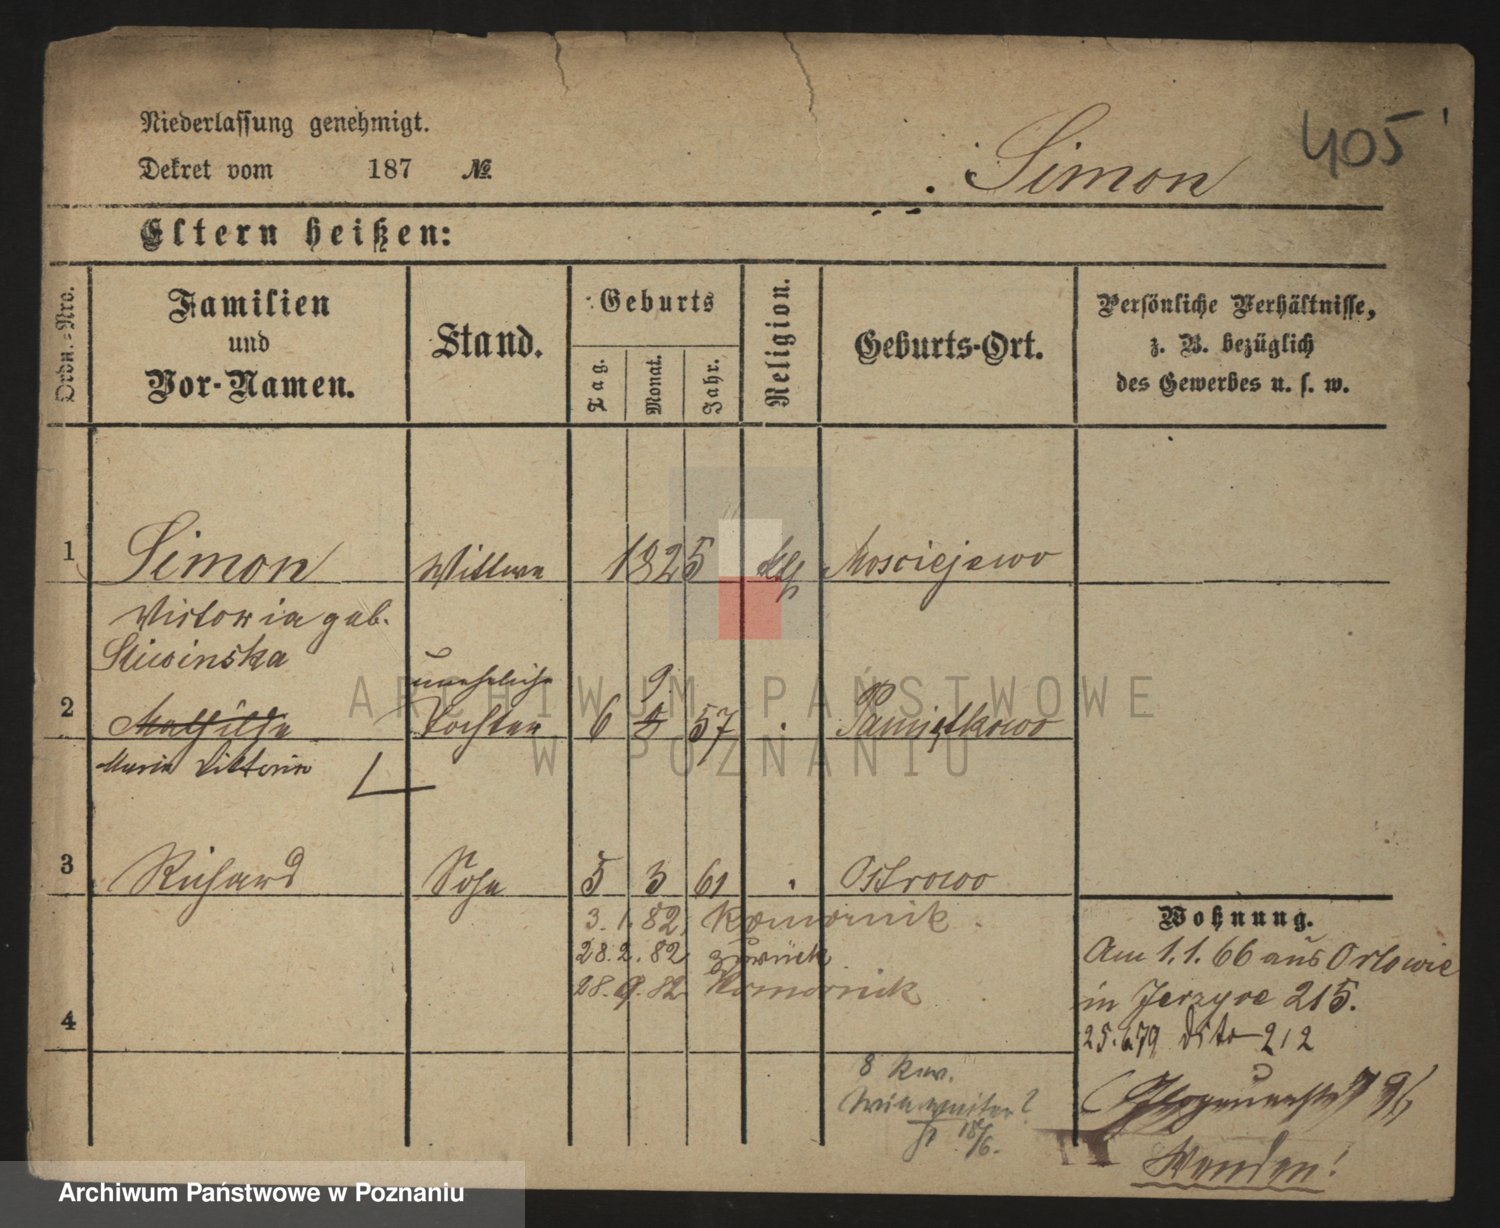 Niederlassung genehmigt.
405
Dekret vom 187 №
Simon
Eltern heißen:
Ordn.-Nro.
Familien
und
Vor-Namen.
Stand.
Geburts
Tag.
Monat.
Jahr.
Religion.
Geburts-Ort.
Persönliche Verhältnisse,
z. B. bezüglich
des Gewerbes u. s. w.
1 Simon Wittwe 1825 kth Mosciejewo
Victoria geb.
Sliwinska
uneheliche 9
2 Mathilde Tochter 6 57 Pamiątkowo
Maria Viktoria
3 Richard Sohn 5 3 61 Ostrowo
3. 1. 82. Komornik
28. 2. 82 zurück
28. 9. 82 Komornick
4
Wohnung.
Am 1. 1. 66 aus Orlowie
in Jerzyce 215.
25. 6. 79 dito 212
8
weiter?
18/6.
Wenden!
ARCHIWUM PAŃSTWOWE
W POZNANIU
Archiwum Państwowe w Poznaniu